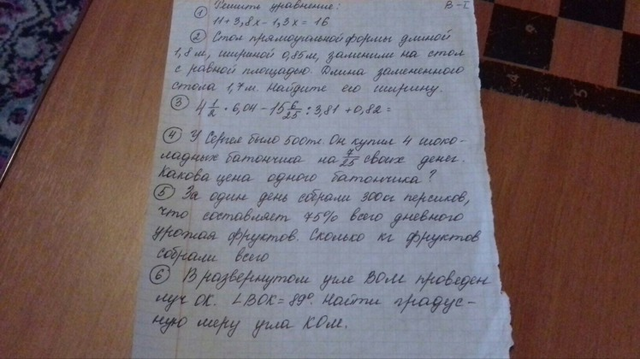 В-I
① Решите уравнение:
11+3,8х-1,3х=16
② Стол прямоугольной формы длиной
1,8м, шириной 0,85м, заменили на стол
с равной площадью. Длина замененного
стола 1,7м. Найдите его ширину.
③ 4 1/2 · 6,04 - 15 6/25 : 3,81 + 0,82 =
④ У Сергея было 500тг. Он купил 4 шоко-
ладных батончика на 7/25 своих денег.
Какова цена одного батончика?
⑤ За один день собрали 300кг персиков,
что составляет 75% всего дневного
урожая фруктов. Сколько кг фруктов
собрали всего
⑥ В развернутом угле ВОМ проведен
луч ОК. ∠ВОК=89°. Найти градус-
ную меру угла КОМ.